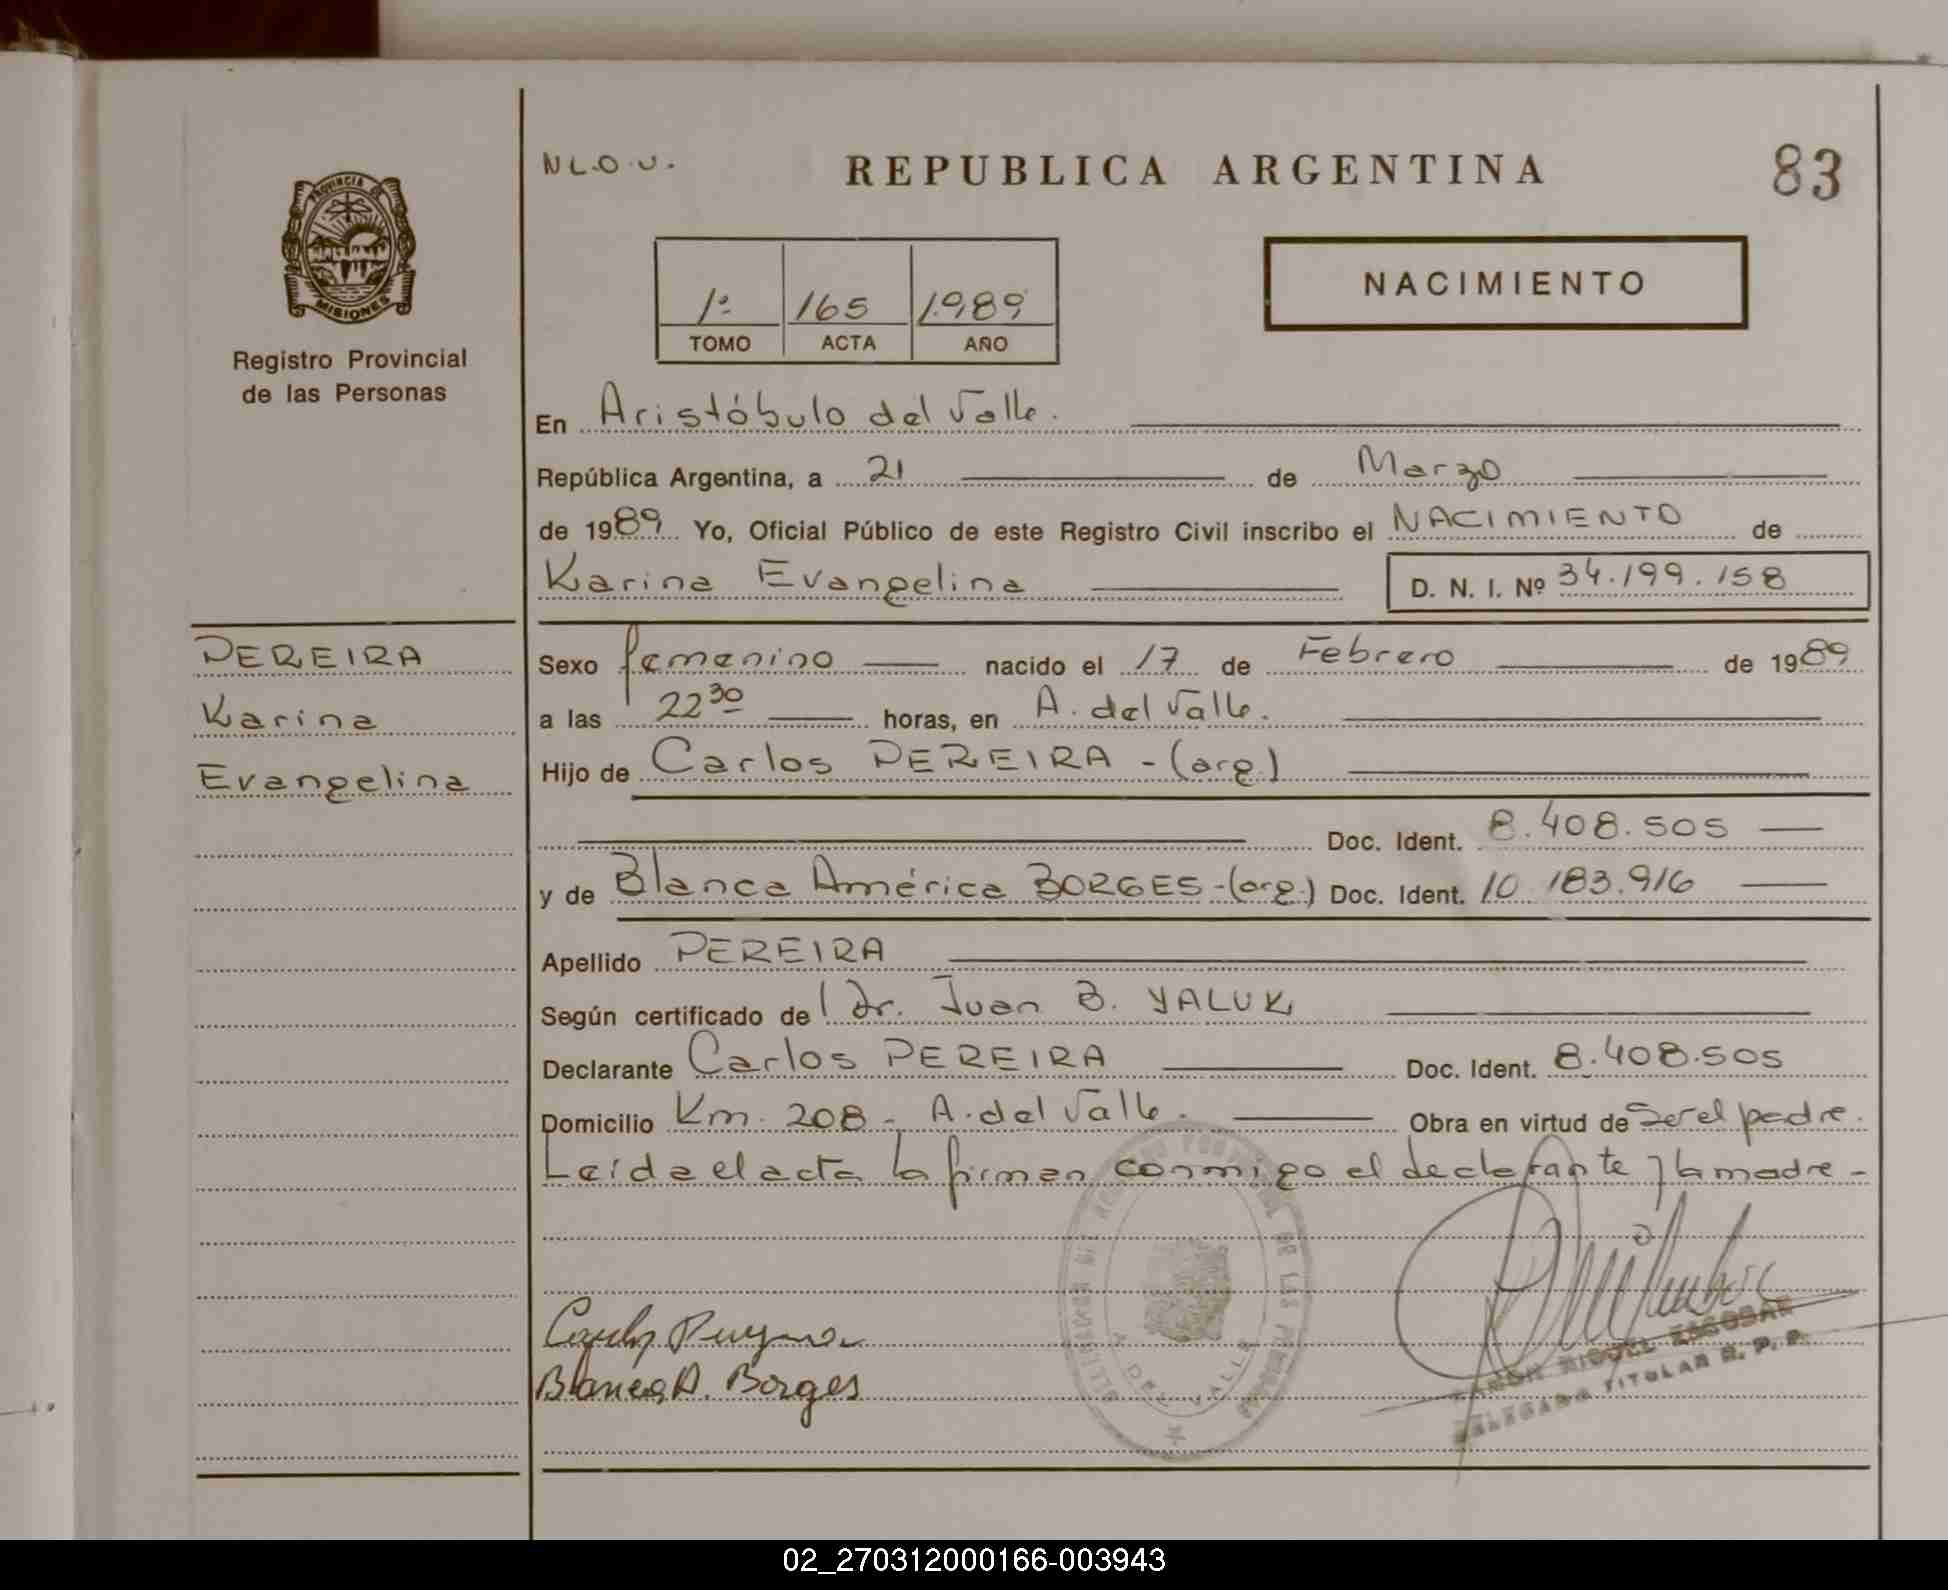 N L.O.U.
REPUBLICA ARGENTINA
83
PROVINCIA DE
MISIONES
Registro Provincial
de las Personas
1º 165 1989
TOMO ACTA AÑO
NACIMIENTO
En Aristóbulo del Valle.
República Argentina, a 21 de Marzo
de 1989 Yo, Oficial Público de este Registro Civil inscribo el NACIMIENTO de
Karina Evangelina D. N. I. Nº 34.199.158
PEREIRA
Karina
Evangelina
Sexo femenino nacido el 17 de Febrero de 1989
a las 22 30 horas, en A. del Valle.
Hijo de Carlos PEREIRA - (arg)
Doc. Ident. 8.408.505
y de Blanca América BORGES - (arg.) Doc. Ident. 10.183.916
Apellido PEREIRA
Según certificado de l Dr. Juan B. YALUK
Declarante Carlos PEREIRA Doc. Ident. 8.408.505
Domicilio Km. 208 - A. del Valle. Obra en virtud de Ser el padre.
Leída el acta la firman conmigo el declarante y la madre -
Blanca A. Borges
A. DEL VALLE
RAMON MIGUEL ESCOBAR
DELEGADO TITULAR R. P. P.
02_270312000166-003943